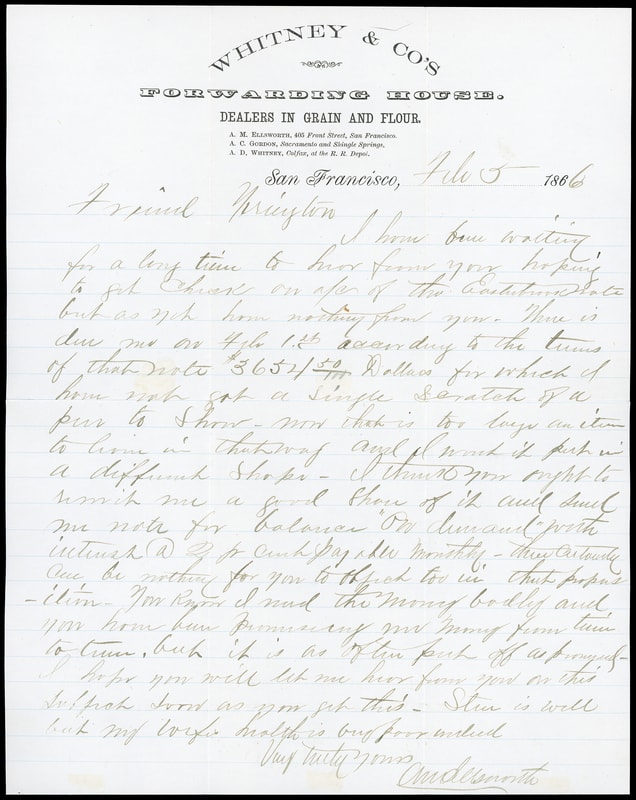 WHITNEY & CO'S
FORWARDING HOUSE.
DEALERS IN GRAIN AND FLOUR.
A. M. ELLSWORTH, 405 Front Street, San Francisco.
A. C. GORDON, Sacramento and Shingle Springs,
A. D. WHITNEY, Colfax, at the R. R. Depot.
San Francisco, Feb 5 1866
Friend Yerington
I have been waiting
for a long time to hear from you hoping
to get check on a/c of the note
but as yet have nothing from you - There is
due me on Feb 1st according to the terms
of that note $3654 50/100 Dollars for which I
have not got a single scratch of a
pen to show - now that is too large an item
to in that way and I want it put in
a different shape - I think you ought to
remit me a good share of it and send
me note for balance "On demand" with
interest @ 2 pr cent payable monthly -
can be nothing for you to object too in that propos
-ition - You know I need the money badly and
you have been promising me money from time
to time, but it is as often put off as promised -
I hope you will let me hear from you on this
subject soon as you get this - is well
but my wife health is very poor indeed
Very truly yours
AM Ellsworth